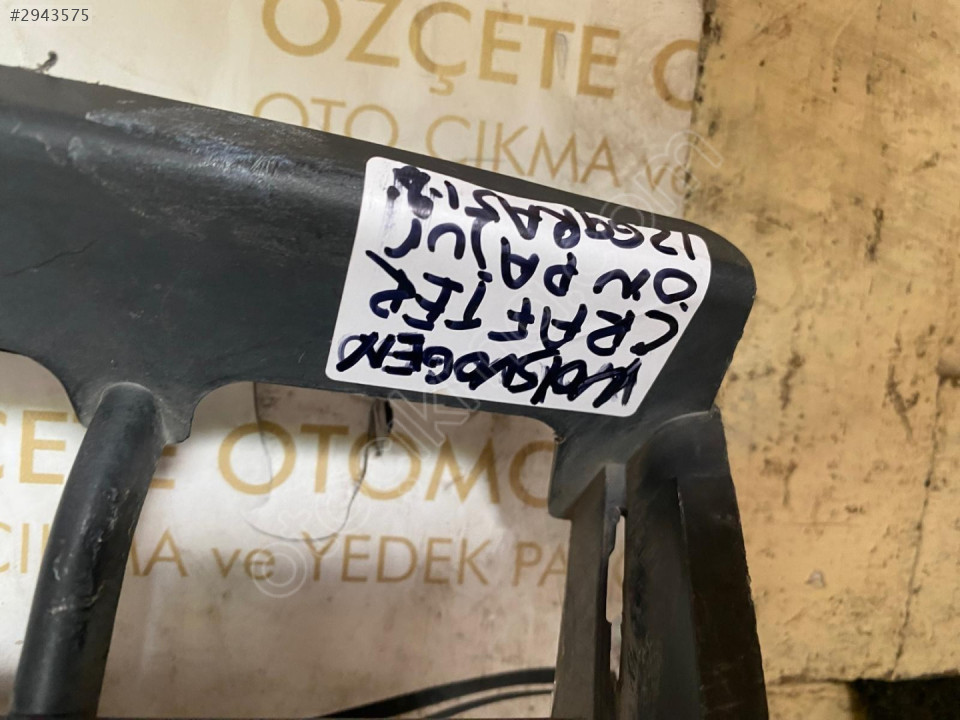 #2943575
ÖZÇETE O
OTO ÇIKMA ve
VOLSVOGEN
CRAFTER
ÖN PANJUR
IZGARASI
ÇETE OTOMO
ÇIKMA ve YEDEK PA